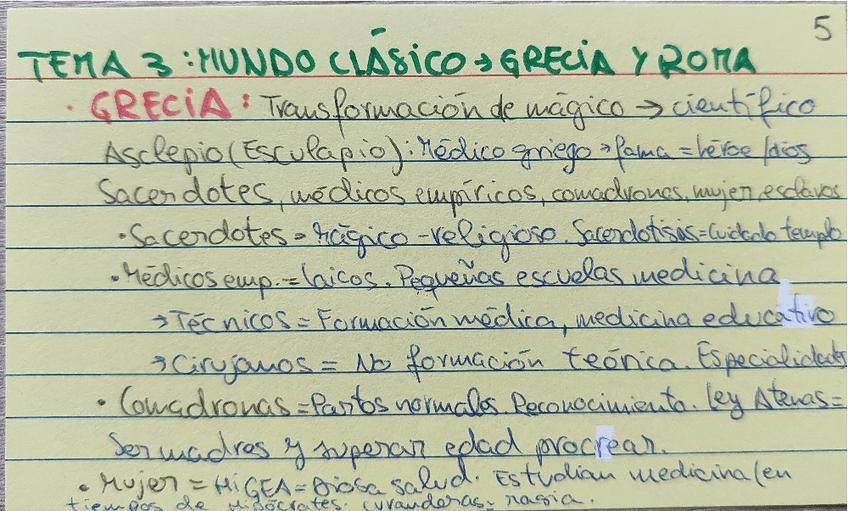 5
TEMA 3: MUNDO CLÁSICO → GRECIA Y ROMA
· GRECIA: Transformación de mágico → científico
Asclepio (Esculapio): Médico griego → fama = héroe / dios
Sacerdotes, médicos empíricos, comadronas, mujer, esclavos
· Sacerdotes = Mágico-religioso. Sacerdotisas = Cuidado templo
· Médicos emp. = Laicos. Pequeñas escuelas medicina
→ Técnicos = Formación médica, medicina educativo
→ Cirujanos = No formación teórica. Especialidades
· Comadronas = Partos normales. Reconocimiento. Ley Atenas =
Ser madres y superar edad procrear.
· Mujer = HIGEA = Diosa salud. Estudian medicina (en
tiempos de Hipócrates. Curanderas = magia.